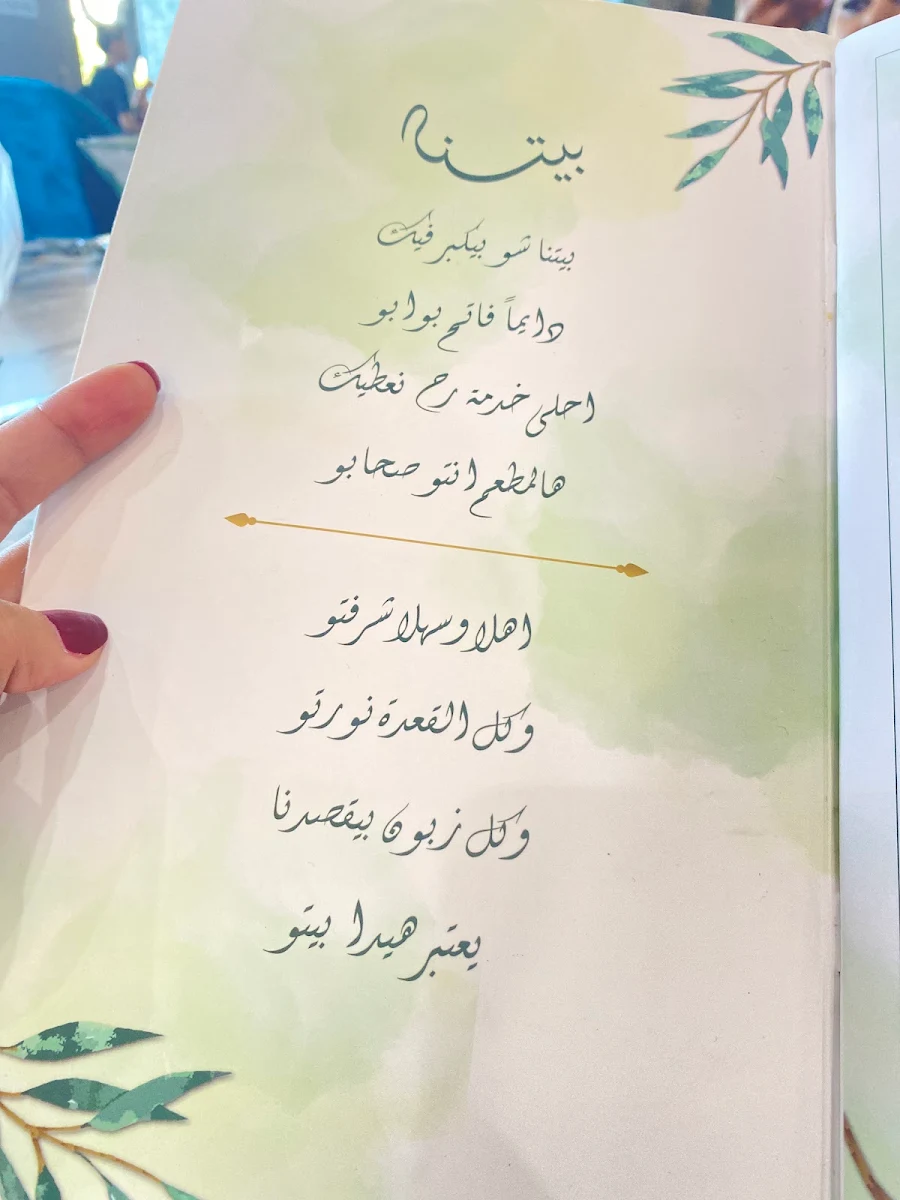 بيتنا
بيتنا شو بيكبر فيك
دايماً فاتح بوابو
احلى خدمة رح نعطيك
هالمطعم انتو صحابو
اهلا وسهلا شرفتو
وكل القعدة نورتو
وكل زبون بيقصدنا
يعتبر هيدا بيتو